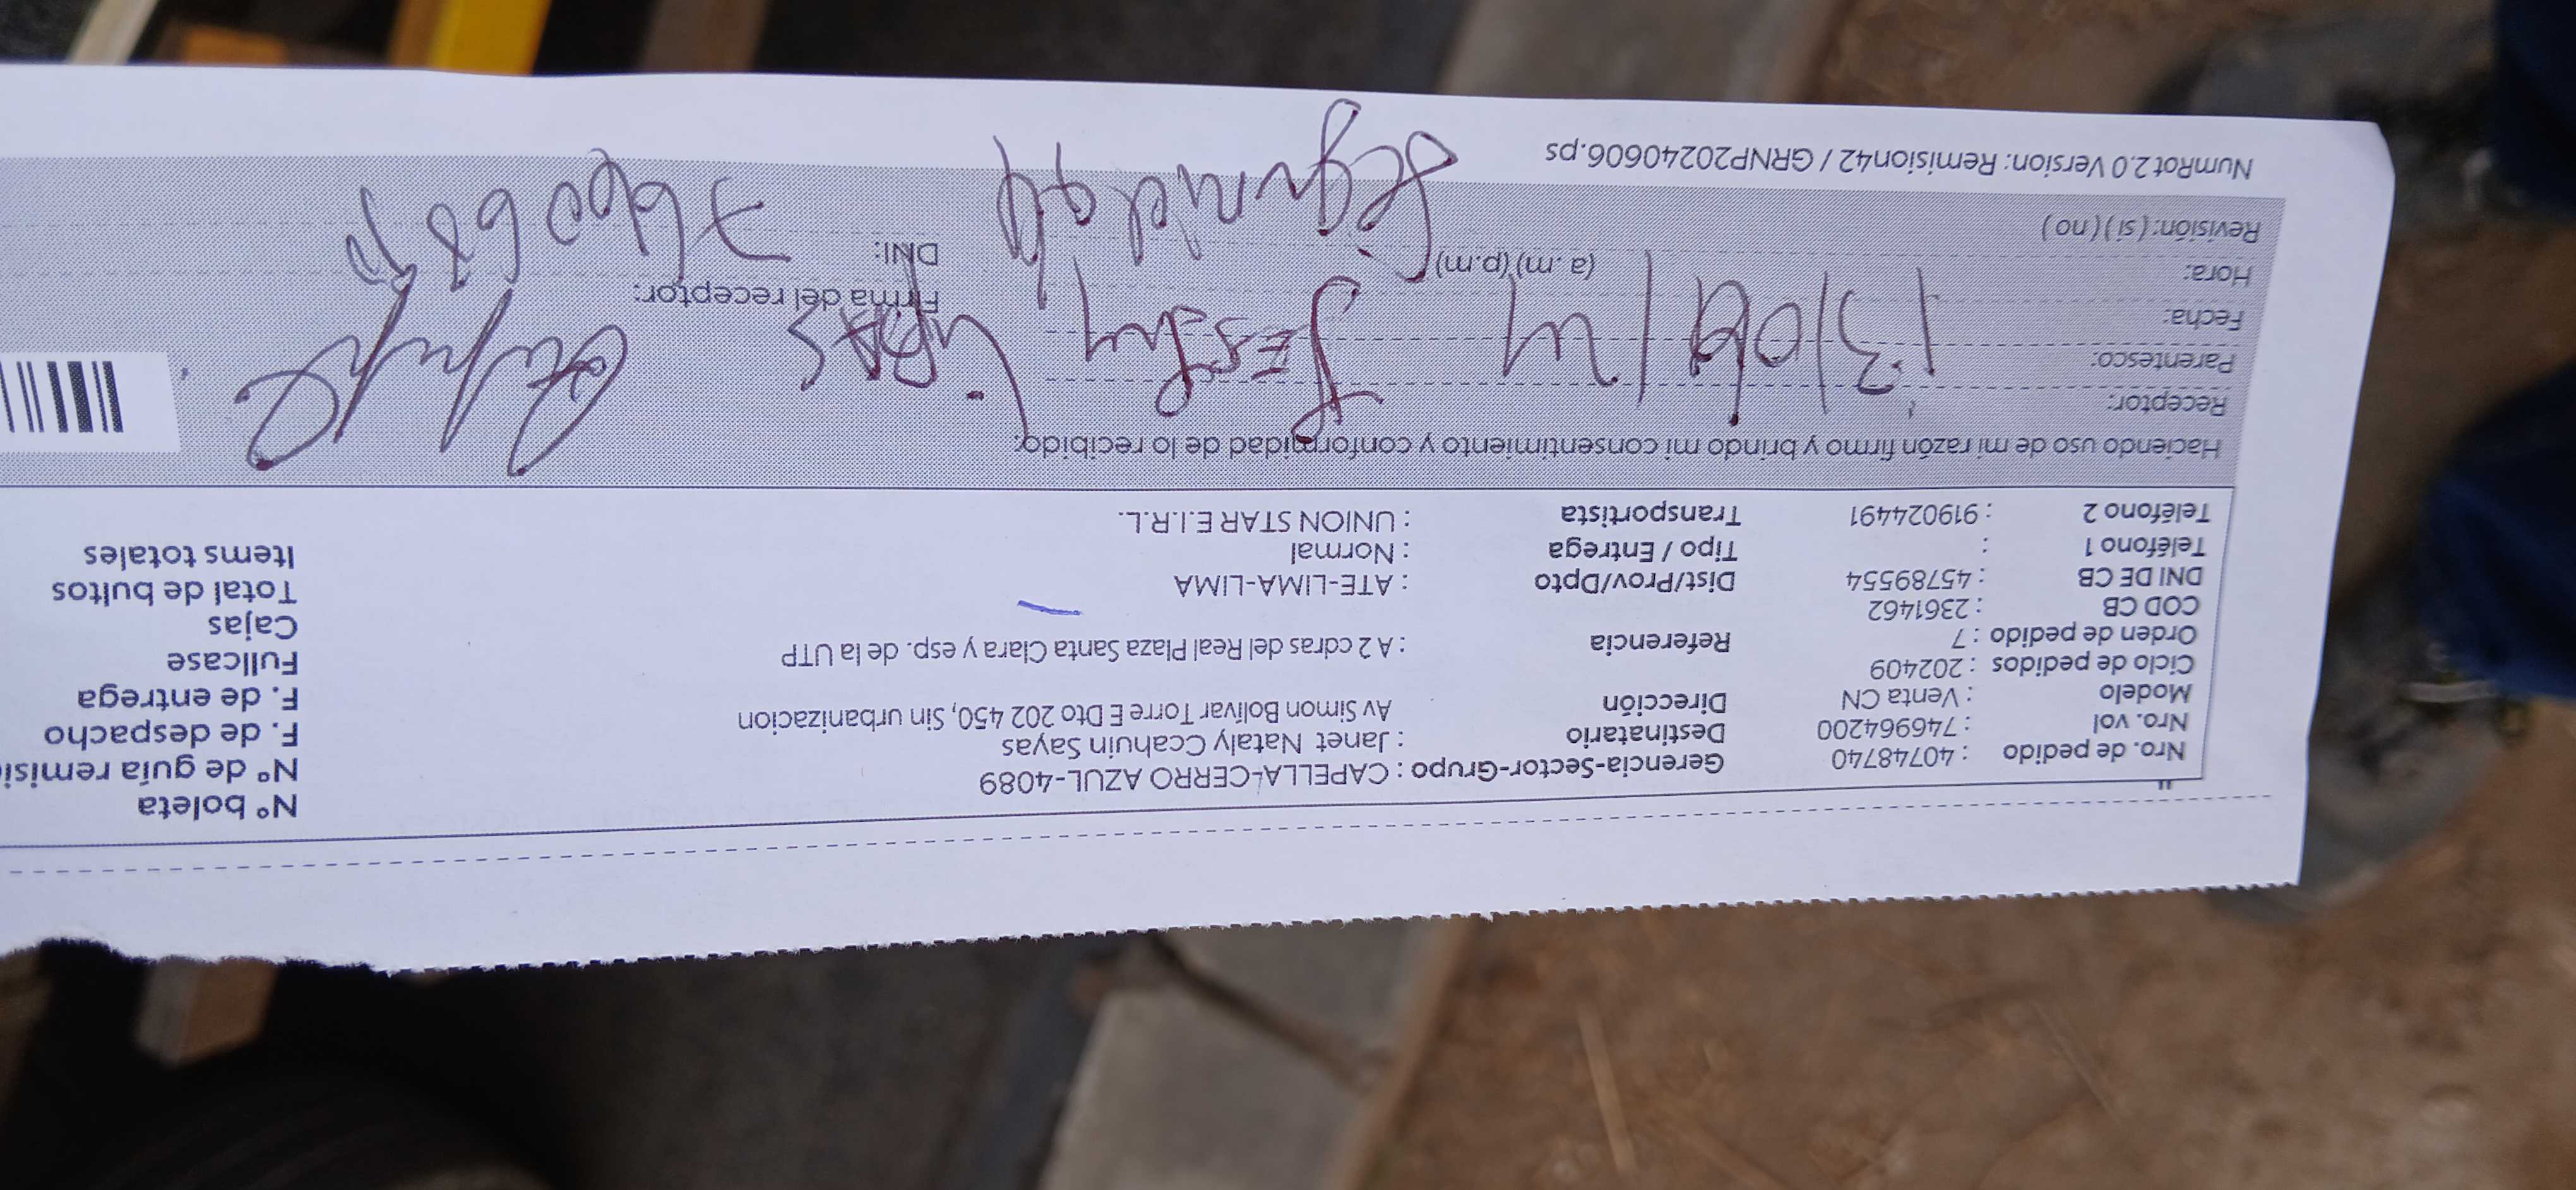 Nº boleta
Nro. de pedido : 40748740 Gerencia-Sector-Grupo : CAPELLA-CERRO AZUL-4089 Nº de guía remisi
Nro. vol : 746964200 Destinatario : Janet Nataly Ccahuin Sayas F. de despacho
Modelo : Venta CN Dirección Av Simon Bolívar Torre E Dto 202 450, Sin urbanizacion F. de entrega
Ciclo de pedidos : 202409 Fullcase
Orden de pedido : 7 Referencia : A 2 cdras del Real Plaza Santa Clara y esp. de la UTP Cajas
COD CB : 2361462 Total de bultos
DNI DE CB : 45789554 Dist/Prov/Dpto : ATE-LIMA-LIMA Items totales
Teléfono 1 : Tipo / Entrega : Normal
Teléfono 2 : 919024491 Transportista : UNION STAR E.I.R.L.
Haciendo uso de mi razón firmo y brindo mi consentimiento y conformidad de lo recibido:
Receptor:
Parentesco:
Fecha: 13/06/24
Hora: (a.m)(p.m) Firma del receptor:
Revisión: (si) (no) DNI:
NumRot 2.0 Version: Remision42 / GRNP20240606.ps